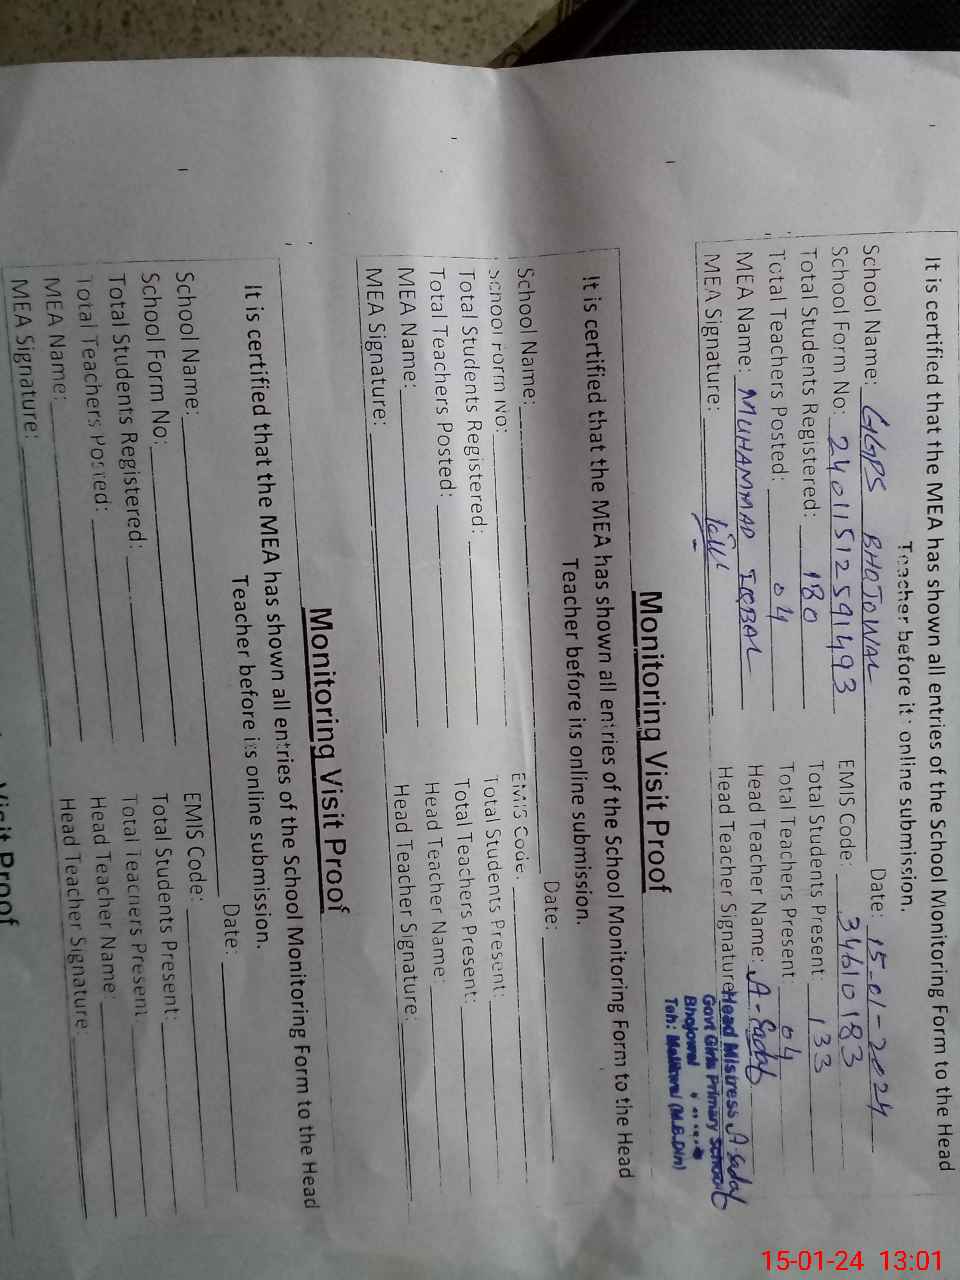 It is certified that the MEA has shown all entries of the School Monitoring Form to the Head
Teacher before its online submission.
School Name: GGPS BHOJOWAL Date: 15-01-2024
School Form No: 2401151259 1493 EMIS Code: 34610183
Total Students Registered: 180 Total Students Present: 133
Total Teachers Posted: 04 Total Teachers Present: 04
MEA Name: MUHAMMAD IQBAL Head Teacher Name: A-Sadaf
MEA Signature: Head Teacher Signature: A Sadaf
Head Mistress
Govt Girls Primary School
Bhojowal
Teh: Malikwal (M.B.Din)
Monitoring Visit Proof
It is certified that the MEA has shown all entries of the School Monitoring Form to the Head
Teacher before its online submission.
School Name: Date:
School Form No: EMIS Code:
Total Students Registered: Total Students Present:
Total Teachers Posted: Total Teachers Present:
MEA Name: Head Teacher Name:
MEA Signature: Head Teacher Signature:
Monitoring Visit Proof
It is certified that the MEA has shown all entries of the School Monitoring Form to the Head
Teacher before its online submission.
School Name: Date:
School Form No: EMIS Code:
Total Students Registered: Total Students Present:
Total Teachers Posted: Total Teachers Present:
MEA Name: Head Teacher Name:
MEA Signature: Head Teacher Signature:
Visit Proof
15-01-24 13:01